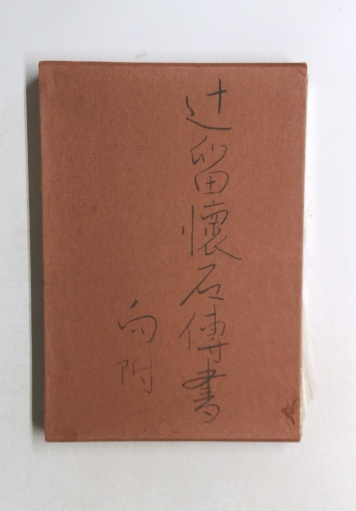 辻留懷石傳書
向附